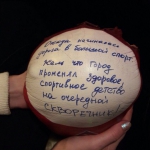 Отсюда начиналась
дорога в большой спорт
Жаль что город
променял здоровое,
спортивное детство
на очередной
СКВОРЕЧНИК!